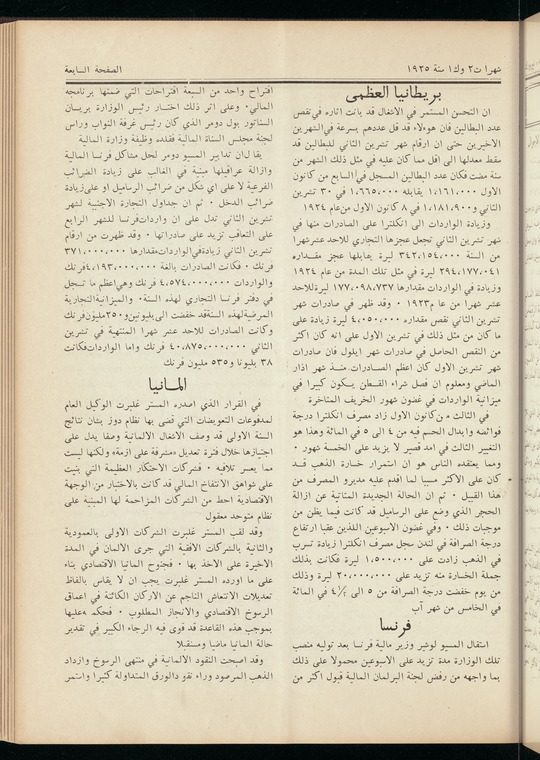 شهرا ت٢ وك١ سنة ١٩٢٥
الصفحة السابعة
بريطانيا العظمى
ان التحسن المستمر في الاشغال قد بانت اثاره في نقص
عدد البطالين فان هوءلاء قد قل عددهم بسرعة في الشهرين
الاخيرين حتى ان ارقام شهر تشرين الثاني للبطالين قد
سقط معدلها الى اقل مما كان عليه في مثل ذلك الشهر من
سنة مضت فكان عدد البطالين المسجل في السابع من كانون
الاول ١،١٦١،٠٠٠ يقابله ١،٦٦٥،٠٠٠ في ٣٠ تشرين
الثاني و١،١٨١،٩٠٠ في ٨ كانون الاول من عام ١٩٢٤
وزيادة الواردات الى انكلترا على الصادرات منها في
شهر تشرين الثاني تجعل عجزها التجاري للاحد عشر شهرا
من السنة ٣٤٢،١٥٤،٠٠٠ ليرة يقابلها عجز مقداره
٢٩٤،١٧٧،٠٤١ ليرة في مثل تلك المدة من عام ١٩٢٤
وزيادة في الواردات مقدارها ١٧٧،٠٩٨،٧٣٧ ليرة للاحد
عشر شهرا من عام ١٩٢٣ ٠ وقد ظهر في صادرات شهر
تشرين الثاني نقص مقداره ٤،٠٥٠،٠٠٠ ليرة زيادة على
ما كان من مثل ذلك في تشرين الاول على انه كان اكثر
من النقص الحاصل في صادرات شهر ايلول فان صادرات
شهر تشرين الاول كان اعظم الصادرات منذ شهر اذار
الماضي ومعلوم ان فصل شراء القطن يكون كبيرا في
ميزانية الواردات في غضون شهور الخريف المتاخرة
في الثالث من كانون الاول زاد مصرف انكلترا درجة
فوائضه وابدال الحسم فيه من ٤ الى ٥ في المائة وهذا هو
التغيير الثالث في امد قصير لا يزيد على الخمسة شهور ٠
ومما يعتقده الناس هو ان استمرار خسارة الذهب قد
كان على الاكثر مسببا لما اقدم عليه مديرو المصرف من
هذا القبيل ٠ ثم ان الحالة الجديدة المتاتية عن ازالة
الحجر الذي وضع على الرساميل قد كانت فيما يظن من
موجبات ذلك ٠ وفي غضون الاسبوعين اللذين عقبا ارتفاع
درجة الصرافة في لندن سجل مصرف انكلترا زيادة تسرب
في الذهب زادت على ١،٥٠٠،٠٠٠ ليرة فكانت بذلك
جملة الخسارة منه تزيد على ٢٠،٠٠٠،٠٠٠ ليرة وذلك
من يوم خفضت درجة الصرافة من ٥ الى ٤½ في المائة
في الخامس من شهر آب
فرنسا
استقال المسيو لوشير وزير مالية فرنسا بعد توليه منصب
تلك الوزارة مدة تزيد على الاسبوعين محمولا على ذلك
بما واجهه من رفض لجنة البرلمان المالية قبول اكثر من
اقتراح واحد من السبعة اقتراحات التي ضمنها برنامجه
المالي ٠ وعلى اثر ذلك اختار رئيس الوزارة بريان
السناتور بول دومر الذي كان رئيس غرفة النواب وراس
لجنة مجلس السناة المالية فقلده وظيفة وزارة المالية
يقال ان تدابير المسيو دومر لحل مشاكل فرنسا المالية
وازالة عراقيلها مبنية في الغالب على زيادة الضرائب
الفرعية لا على اي شكل من ضرائب الرساميل او على زيادة
ضرائب الدخل ٠ ثم ان جداول التجارة الاجنبية لشهر
تشرين الثاني تدل على ان واردات فرنسا للشهر الرابع
على التعاقب تزيد على صادراتها ٠ وقد ظهرت من ارقام
تشرين الثاني زيادة في الواردات مقدارها ٣٧١،٠٠٠،٠٠٠
فرنك ٠ فكانت الصادرات بالغة ٤،١٩٣،٠٠٠،٠٠٠ فرنك
والواردات ٤،٥٧٤،٠٠٠،٠٠٠ فرنك وهي اعظم ما تسجل
في دفتر فرنسا التجاري لهذه السنة ٠ والميزانية التجارية
المرضية لهذه السنة قد خفضت الى بليونين و٢٥٠ مليون فرنك
وكانت الصادرات للاحد عشر شهرا المنتهية في تشرين
الثاني ٤٠،٨٧٥،٠٠٠،٠٠٠ فرنك واما الواردات فكانت
٣٨ بليونا و٥٣٥ مليون فرنك
المانيا
في القرار الذي اصدره المستر غلبرت الوكيل العام
لمدفوعات التعويضات التي قضى بها نظام دوز بشان نتائج
السنة الاولى قد وصف الاشغال الالمانية وصفا يدل على
اجتيازها خلال فترة تعديل «مشرفة على ازمة» ولكنها ليست
مما يعسر تلافيه ٠ فشركات الاحتكار العظيمة التي بنيت
على شواهق الانتفاخ المالي قد كانت بالاختبار من الوجهة
الاقتصادية احط من الشركات المزاحمة لها المبنية على
نظام متوحد معقول
وقد لقب المستر غلبرت الشركات الاولى بالعمودية
والثانية بالشركات الافقية التي جرى الالمان في المدة
الاخيرة على الاخذ بها ٠ فجنوح المانيا الاقتصادي بناء
على ما اورده المستر غلبرت يجب ان لا يقاس بالفاظ
تعديلات الانتعاش الناجم عن الاركان الكائنة في اعماق
الرسوخ الاقتصادي والانجاز المطلوب ٠ فحكمه عليها
بموجب هذه القاعدة قد قوى فيه الرجاء الكبير في تقدير
حالة المانيا ماضيا ومستقبلا
وقد اصبحت النقود الالمانية في منتهى الرسوخ وازداد
الذهب المرصود وراء نقود الورق المتداولة كثيرا واستمر